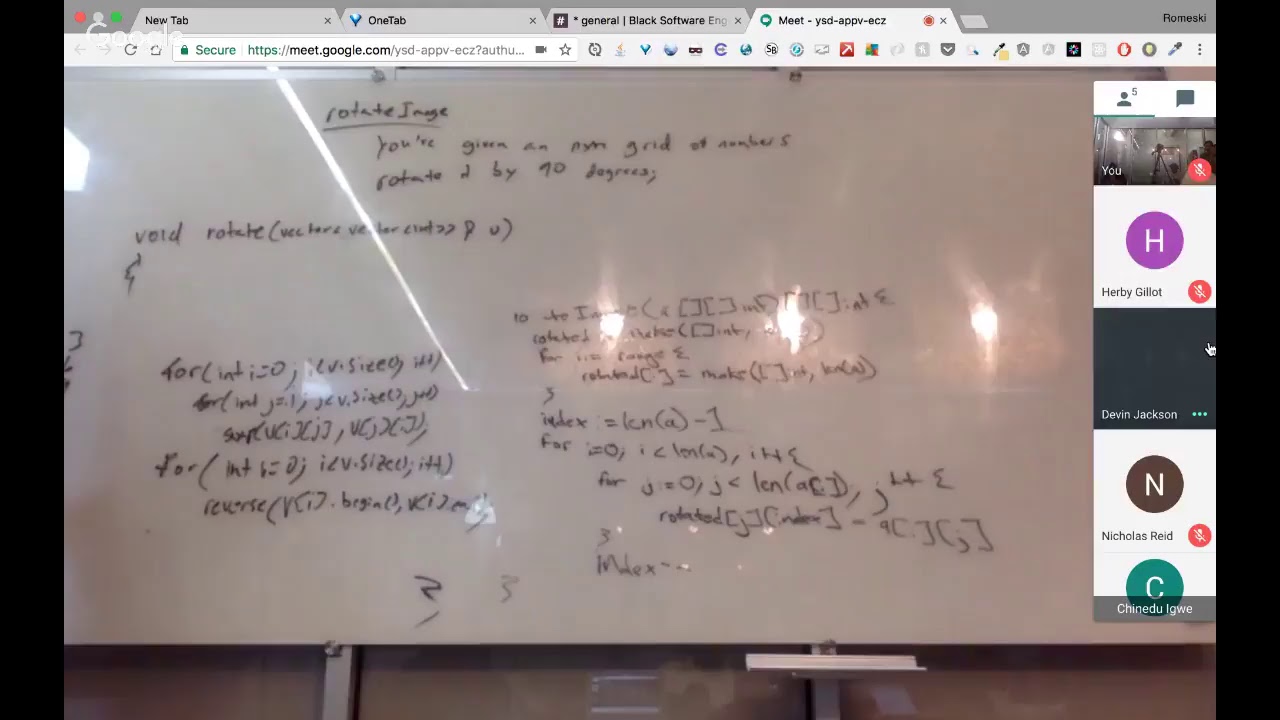 New Tab
OneTab
* general | Black Software Eng
Meet - ysd-appv-ecz
Romeski
Google
Secure
https://meet.google.com/ysd-appv-ecz?authu...
5
You
H
Herby Gillot
Devin Jackson
N
Nicholas Reid
C
Chinedu Igwe
rotateImage
You're given an nxn grid of numbers
rotate it by 90 degrees;
void rotate(vector<vector<int>> & v)
{
for(int i=0; i<v.size(); i++)
for(int j=i; j<v.size(); j++)
swap(v[i][j], v[j][i]);
for( int i=0; i<v.size(); i++)
reverse(v[i].begin(), v[i].en
}
(a [][]int) [][]int {
rotated make([]int,
for i:= range {
rotated[i] = make([]int, len(a))
}
index := len(a) -1
for i=0; i < len(a), i++ {
for j=0; j < len(a[i]), j++ {
rotated[j][index] = a[i][j]
}
index--
}